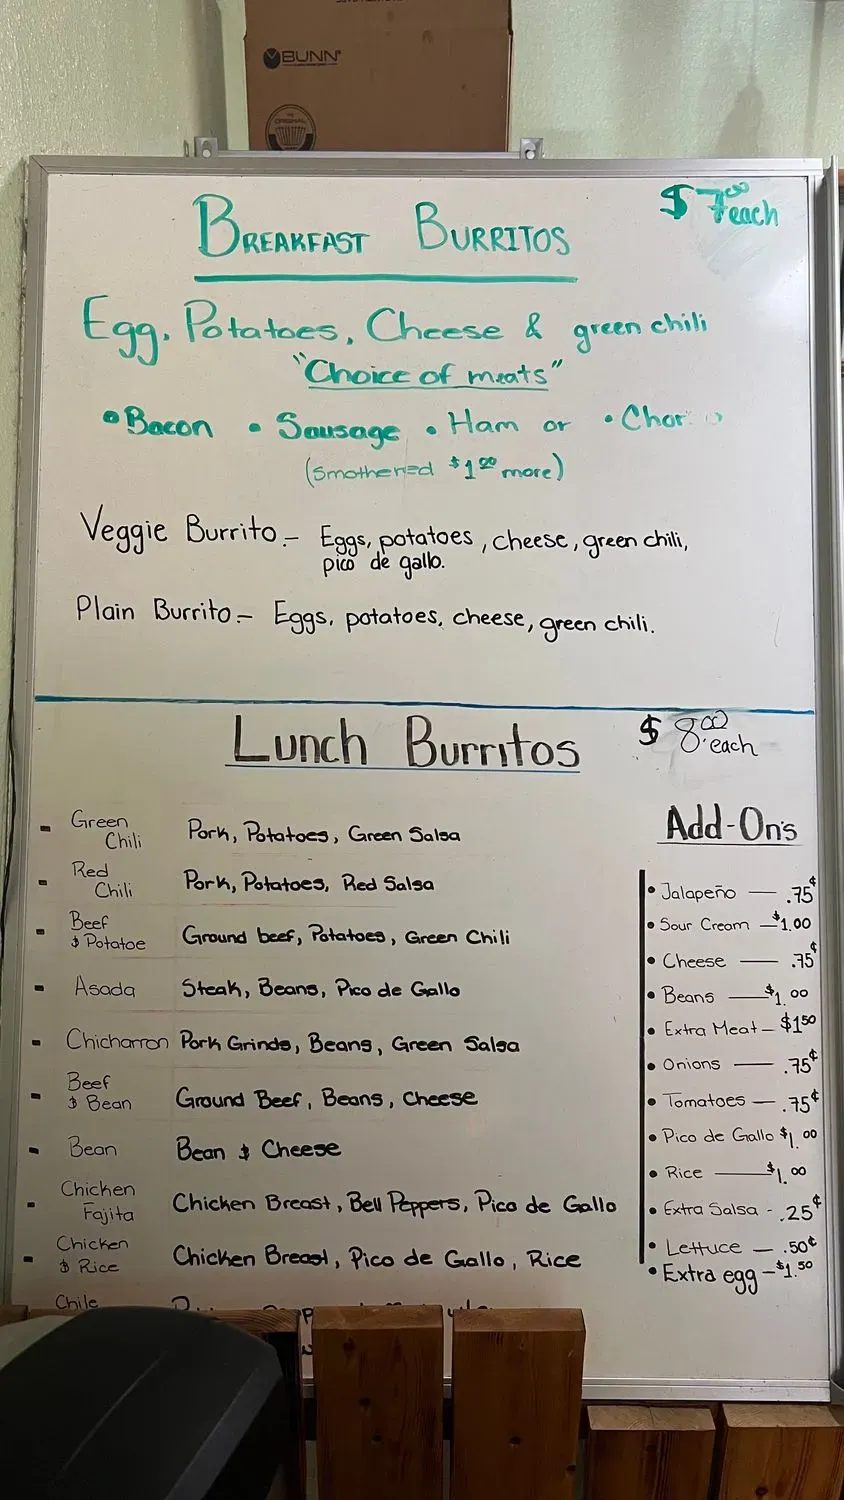 BUNN
BREAKFAST BURRITOS
$7.00 each
Egg, Potatoes, Cheese & green chili
"Choice of meats"
• Bacon • Sausage • Ham or •
(Smothered $1.00 more)
Veggie Burrito.- Eggs, potatoes, cheese, green chili,
pico de gallo.
Plain Burrito.- Eggs, potatoes, cheese, green chili.
Lunch Burritos
$8.00 each
- Green Chili Pork, Potatoes, Green Salsa
- Red Chili Pork, Potatoes, Red Salsa
- Beef & Potatoe Ground beef, Potatoes, Green Chili
- Asada Steak, Beans, Pico de Gallo
- Chicharron Pork Grinds, Beans, Green Salsa
- Beef & Bean Ground Beef, Beans, Cheese
- Bean Bean & Cheese
- Chicken Fajita Chicken Breast, Bell Peppers, Pico de Gallo
- Chicken & Rice Chicken Breast, Pico de Gallo, Rice
Chile
Add-On's
• Jalapeño — .75¢
• Sour Cream — $1.00
• Cheese — .75¢
• Beans — $1.00
• Extra Meat – $1.50
• Onions — .75¢
• Tomatoes — .75¢
• Pico de Gallo $1.00
• Rice — $1.00
• Extra Salsa - .25¢
• Lettuce — .50¢
• Extra egg – $1.50